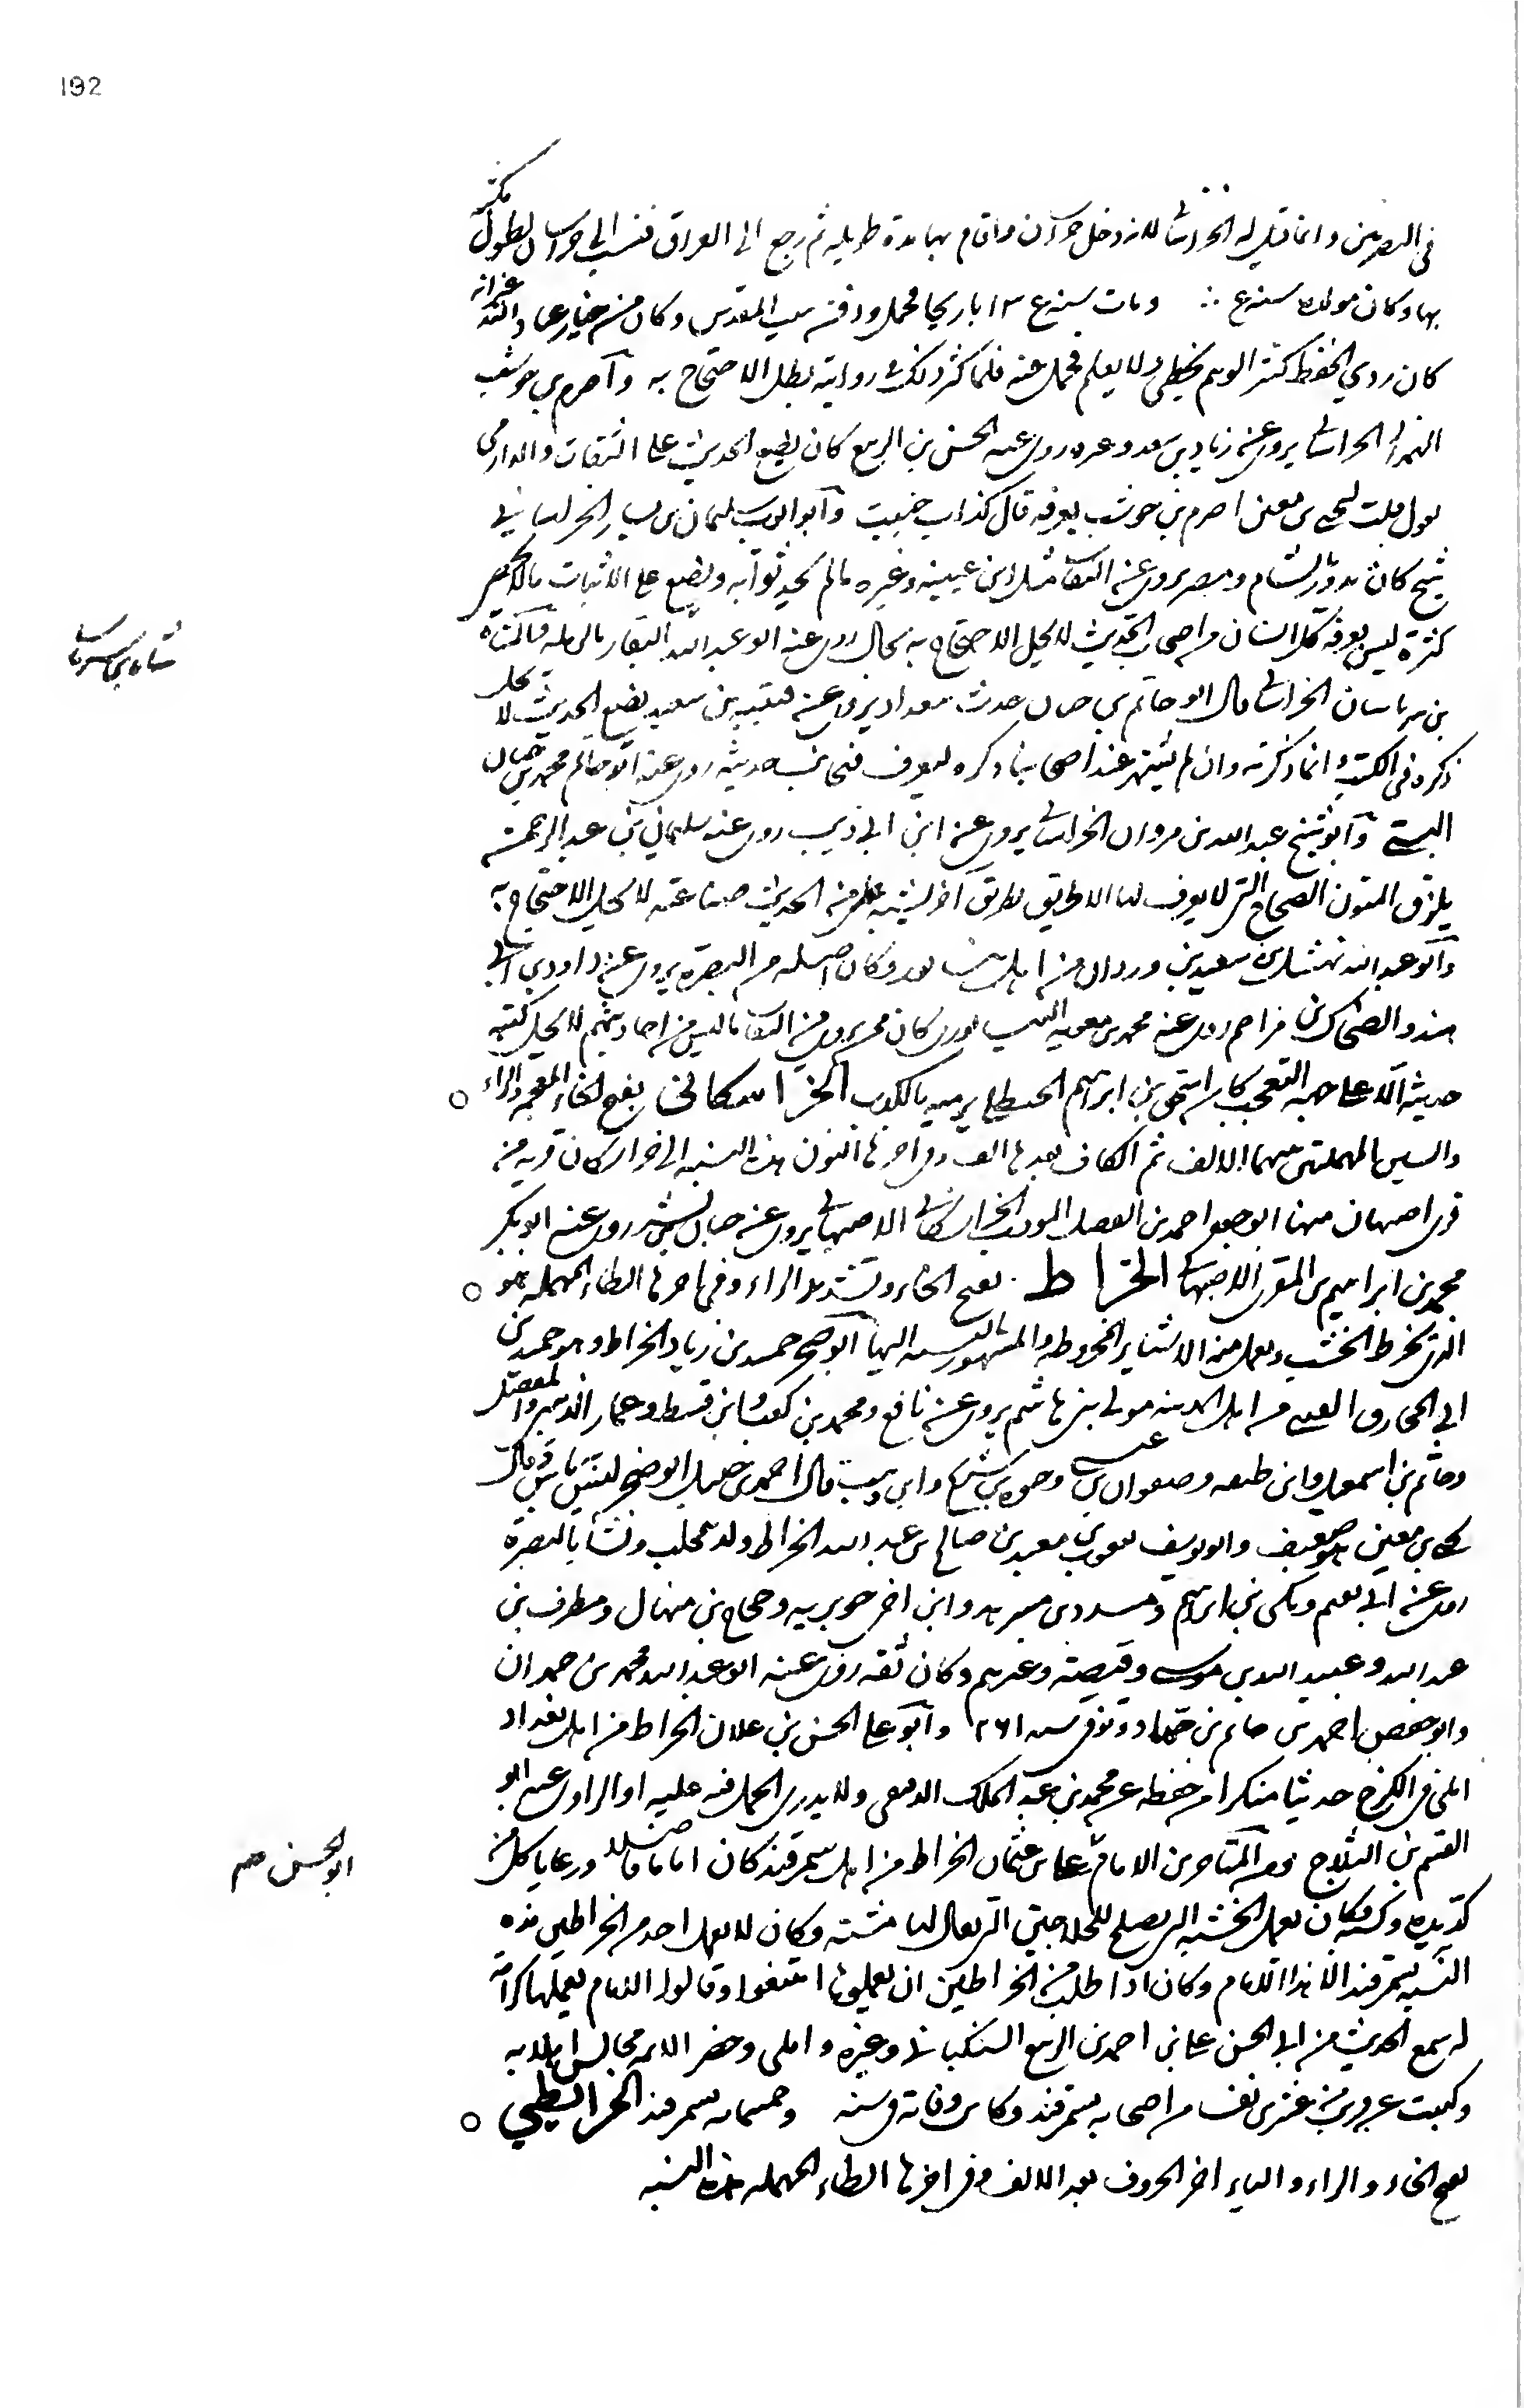 192
مكثه
في البصريين وانما قيل له الخراساني لانه دخل خراسان واقام بها مدة طويلة ثم رجع الى العراق فنسب الى خراسان لطول
بها وكان مولده سنة ومات سنة باريحا فحمل ودفن ببيت المقدس وكان من خيار عباد الله غير انه
كان ردي الحفظ كثير الوهم يخطئ ولا يعلم فحمل عنه فلما كثر ذلك في روايته بطل الاحتجاج به واصرم بن حوشب
الخراساني يروي عن زياد بن سعد وغيره روى عنه الحسن بن الربيع كان يضع الحديث على الثقات والدارمي
يقول قلت ليحيى بن معين اصرم بن حوشب يعرفه قال كذاب خبيث وابو ايوب سليمان بن بسار الخراساني
شيخ كان يدور بالشام ومصر يروي عن الثقات مثل ابن عيينه وغيره ما لم يحدثوا به ويضع على الاثبات ما لا يحصى
كثرة ليس يعرفه كل انسان من اصحاب الحديث لا يحل الاحتجاج به بحال روى عنه ابو عبد الله البقار بالرمله
بن سرياسان الخراساني قال ابو حاتم بن حبان حدث ببغداد يروي عن قتيبه بن سعيد يضع الحديث لا يحل
ذكره في الكتب وانما ذكرته وان لم يشتهر عند اصحابنا ذكره ليعرف فتجانب حديثه روى عنه ابو حاتم محمد بن حبان
البستي وابو شيخ عبد الله بن مروان الخراساني يروي عن ابن ابي ذيب روى عنه سليمان بن عبد الرحمن
يلزق المتون الصحاح التي لا يعرف لها الا طريق بطريق آخر ليشتبه على من الحديث صناعته لا يحل الاحتجاج به
وابو عبد الله نهشل بن سعيد بن وردان من اهل نيسابور وكان اصله من البصرة يروي عن داود بن ابي
هند والضحاك بن مزاحم روى عنه محمد بن معويه النيسابوري كان ممن يروي عن الثقات ما ليس من احاديثهم لا يحل كتبه
حديثه الا على جهة التعجب كان اسحق بن ابراهيم الحنظلي يرميه بالكذب الخراسكاني بفتح الخاء المعجمة والراء
والسين المهملتين بينهما الالف ثم الكاف بعدها الف وفي اخرها النون هذه النسبه الى خراسكان قريه من
قرى اصبهان منها ابو جعفر احمد بن الفضل المودب الخراسكاني الاصبهاني يروي عن حبان بن بشر روى عنه ابو بكر
محمد بن ابراهيم بن المقرئ الاصبهاني الخراط بفتح الخاء وتشديد الراء وفي اخرها الطاء المهمله هو
الذي يخرط الخشب ويعمل منه الاشياء المخروطه والمشهور بالنسبه اليها ابو صخر حميد بن زياد الخراط وهو حميد بن
ابي المخارق العبسي من اهل المدينه مولى بني هاشم يروي عن نافع ومحمد بن كعب وابن قسيط وعمار الدهني روى المفضل
وحاتم بن اسمعيل وابن لهيعه وصفوان بن عيسى وحيوه بن شريح وابن وهب قال احمد بن حنبل ابو صخر ليس به باس وقال
يحيى بن معين هو ضعيف وابو يوسف يعقوب بن معبد بن صالح بن عبد الله الخراط ولد بحلب ونشأ بالبصرة
روى عن ابي نعيم ومكي بن ابراهيم ومسدد بن مسرهد وابن اخي جويريه وحجاج بن منهال ومطرف بن
عبد الله وعبيد الله بن موسى وقبيصة وغيرهم وكان ثقه روى عنه ابو عبد الله محمد بن حمدان
وابو جعفر احمد بن حاتم بن حماد وتوفي سنه ٢٦١ وابو علي الحسن بن علان الخراط من اهل بغداد
املى في الكرخ حديثا منكرا من حفظه عن محمد بن عبد الملك الدقيقي ولا يدرى الحمل فيه عليه او الراوي عنه ابو
القسم بن الثلاج ومن المتاخرين الامام علي بن عثمان الخراط من اهل سمرقند كان اماما فاضلا ورعا ياكل من
كد يده وكسبه وكان يعمل الخشبه التي يصلح للحلاجين التي يقال لها مشته وكان لا يعمل احد من الخراطين هذه
النسبه بسمرقند الا هذا الامام وكان اذا طلب من الخراطين ان يعملوها امتنعوا وقالوا الامام يعملها كرامة
له سمع الحديث من ابي الحسن علي بن احمد بن الربيع السنكباثي وغيره واملى وحضر الايمه مجالس املايه
وكتبت عن قريب من عشرين نفسا من اصحابه بسمرقند وكانت وفاته في سنه وخمسمايه بسمرقند الخرائطي
بفتح الخاء والراء والياء اخر الحروف بعد الالف وفي اخرها الطاء المهمله هذه النسبه
ابو الحسن